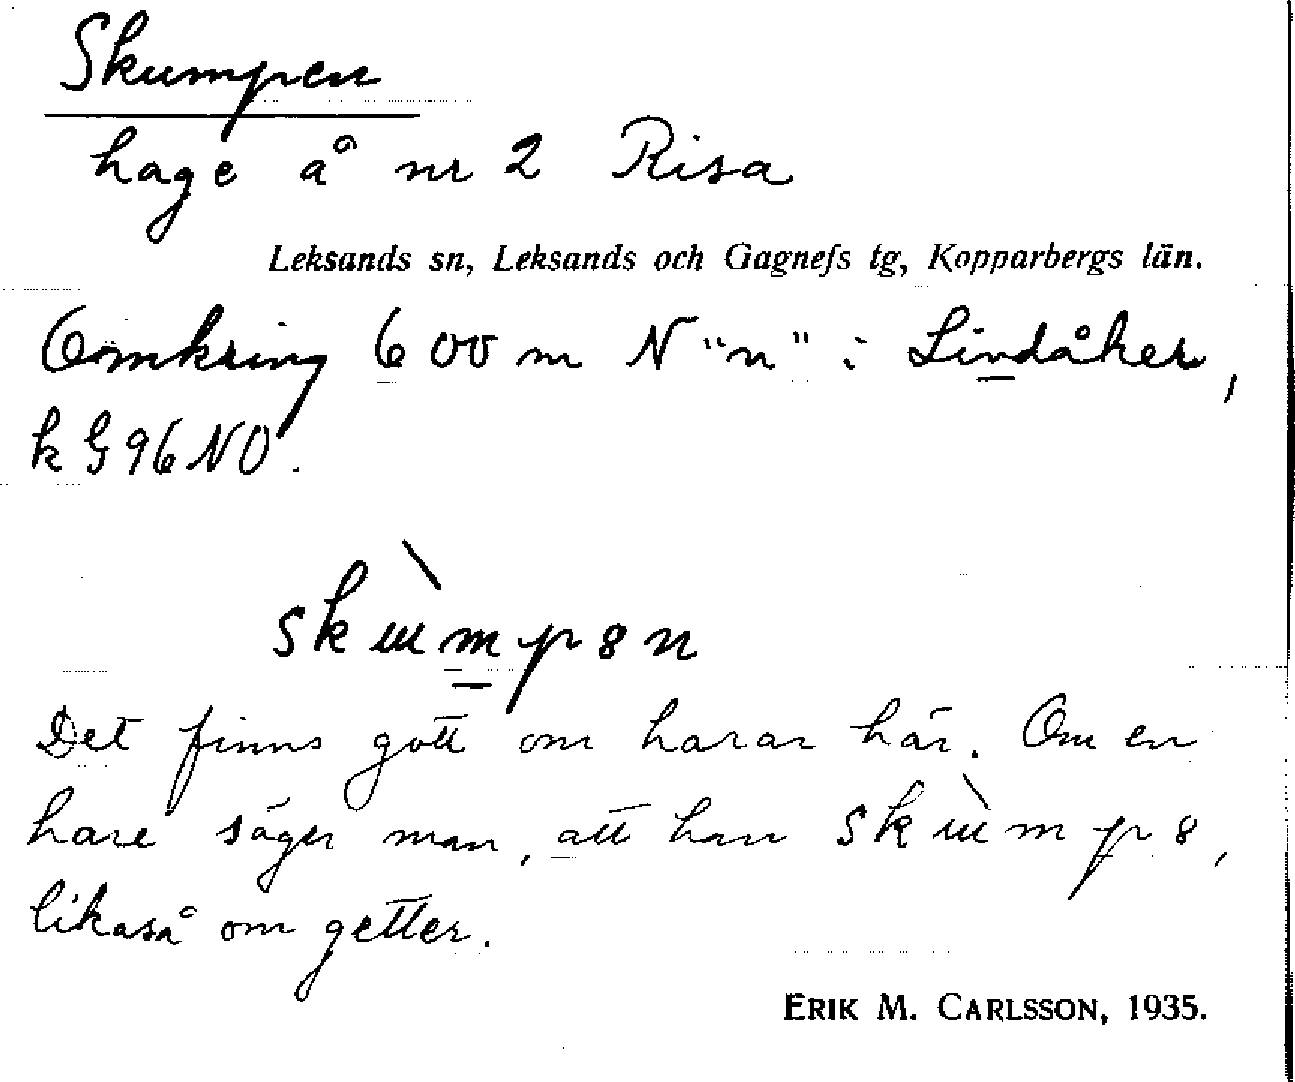 Skumpen
hage å nr 2 Risa
Leksands sn, Leksands och Gagnefs tg, Kopparbergs län.
Omkring 600 m N "n" i Lindåker,
k G 96 NO.
skɯ̀mp8n
Det finns gott om harar här. Om en
hare säger man, att han skɯ̀mp8,
likaså om getter.
ERIK M. CARLSSON, 1935.